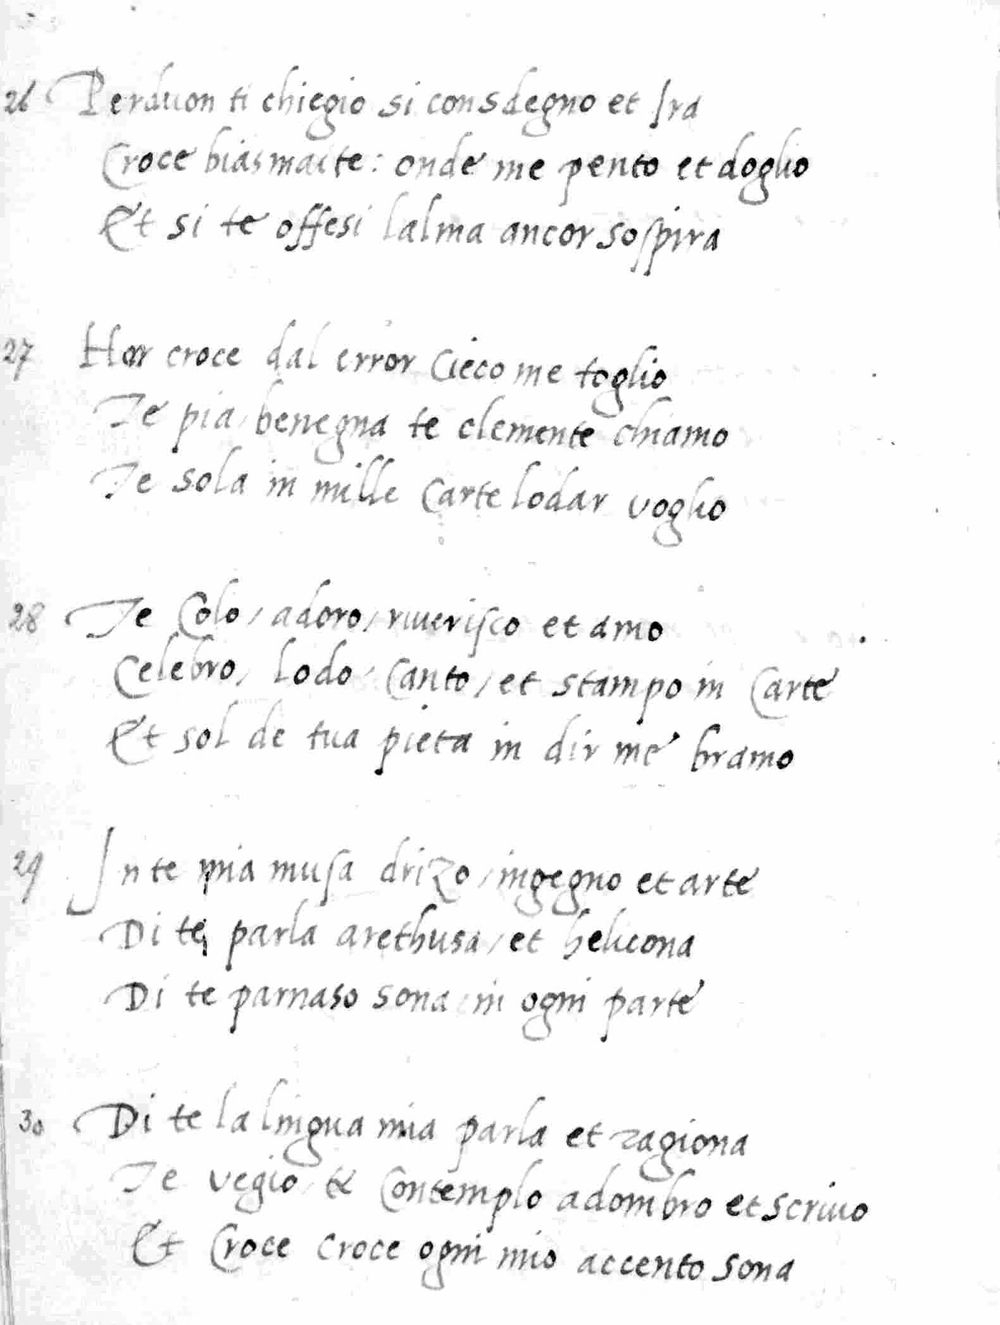 26 Perduon ti chiegio si con sdegno et Ira
Croce biasmaite: onde me pento et doglio
Et si te offesi lalma ancor sospira
27 Hor croce dal error Cieco me toglio
Te pia benegna te clemente chiamo
Te sola in mille Carte lodar voglio
28 Te Colo / adoro / riuerisco et amo
Celebro / lodo / Canto / et stampo in Carte
Et sol de tua pieta in dir me bramo
29 In te mia musa drizo / ingegno et arte
Di te parla arethusa / et helicona
Di te parnaso sona in ogni parte
30 Di te la lingua mia parla et ragiona
Te vegio / te Contemplo adombro et scriuo
Et Croce Croce ogni mio accento sona